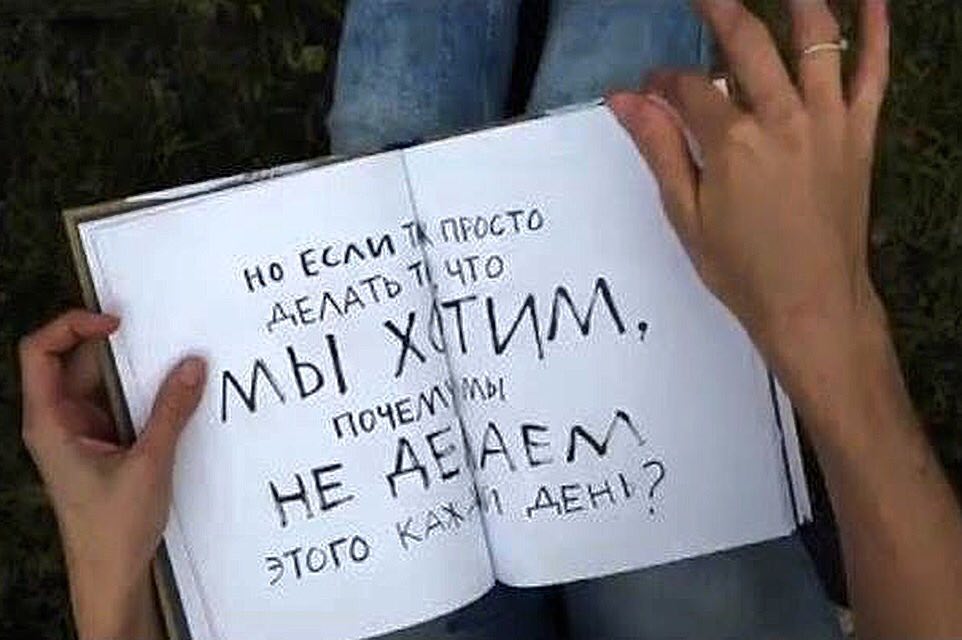 НО ЕСЛИ ТАК ПРОСТО
ДЕЛАТЬ ТО ЧТО
МЫ ХОТИМ,
ПОЧЕМУ МЫ
НЕ ДЕЛАЕМ
ЭТОГО КАЖДЫЙ ДЕНЬ?